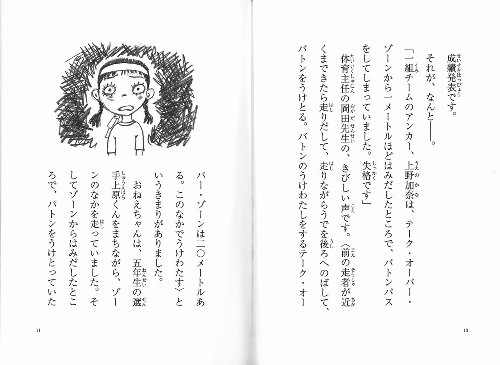 成績発表です。
それが、なんと――。
「一組チームのアンカー、上野加奈は、テーク・オーバー・
ゾーンから一メートルほどはみだしたところで、バトンパス
をしてしまっていました。失格です」
体育主任の岡田先生の、きびしい声です。〈前の走者が近
くまできたら走りだして、走りながらうでを後ろへのばして、
バトンをうけとる。バトンのうけわたしをするテーク・オー
10
バー・ゾーンは二〇メートルあ
る。このなかでうけわたす〉と
いうきまりがありました。
おねえちゃんは、五年生の選
手上原くんをまちながら、ゾー
ンのなかを走っていました。そ
してゾーンからはみだしたとこ
ろで、バトンをうけとっていた
11